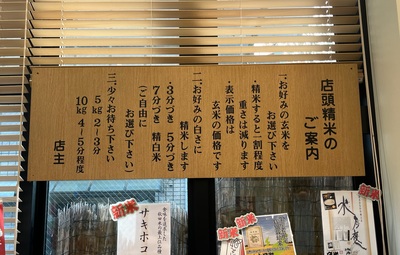 店頭精米の
ご案内
一.お好みの玄米を
お選び下さい
・精米すると一割程度
重さは減ります
・表示価格は
玄米の価格です
二.お好みの白さに
精米します
・3分づき 5分づき
7分づき 精白米
(ご自由に
お選び下さい)
三.少々お待ち下さい
5kg 2〜3分
10kg 4〜5分程度
店主
新米
サキホコレ
新米
新米
新米